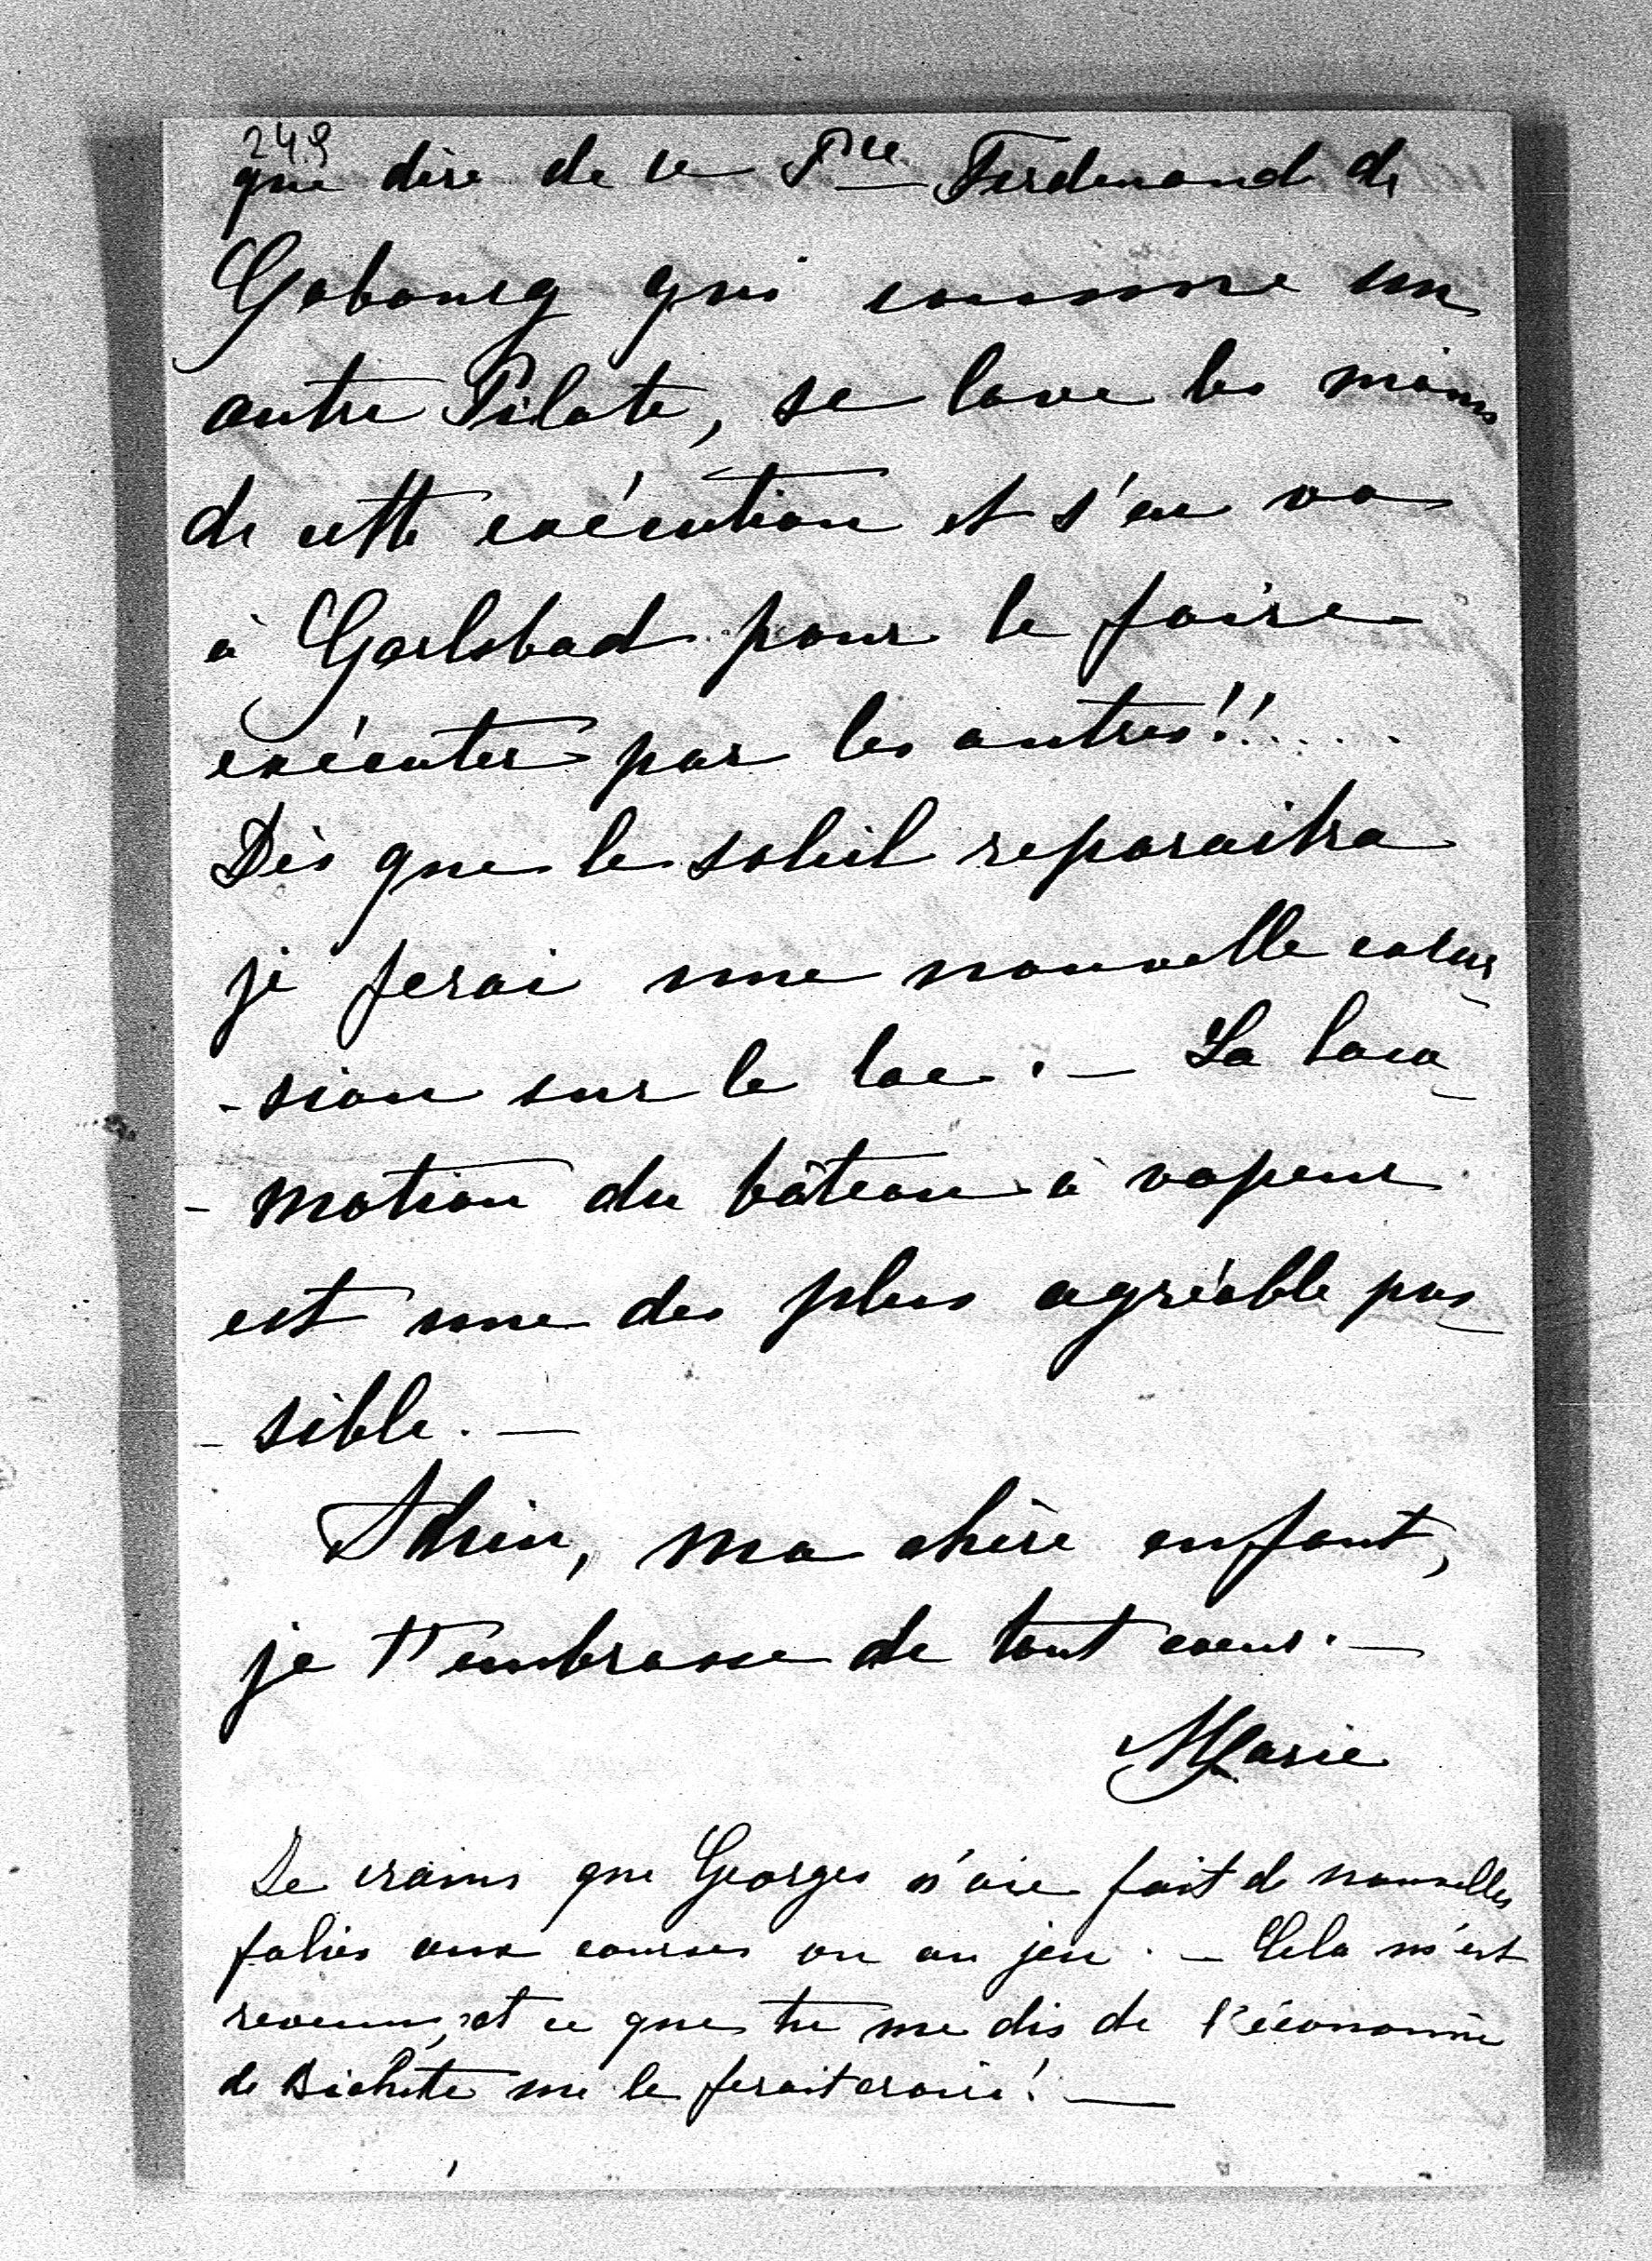 249
que dire de ce Pce Ferdinand de
Cobourg qui comme un
autre Pilate, se lave les mains
de cette exécution et s'en va
à Carlsbad pour le faire
exécuter par les autres!!....
Dès que le soleil reparaitra
je ferai une nouvelle excur
-sion sur le lac. — La loco
-motion du bâteau à vapeur
est une des plus agréable pos
-sible. —
Adieu, ma chère enfant,
je t'embrasse de tout coeur. —
Marie
Je crains que Georges n'aie fait de nouvelles
folies aux courses ou au jeu. — Cela m'est
revenu, et ce que tu me dis de l'économie
de Bichette me le ferait croire! —